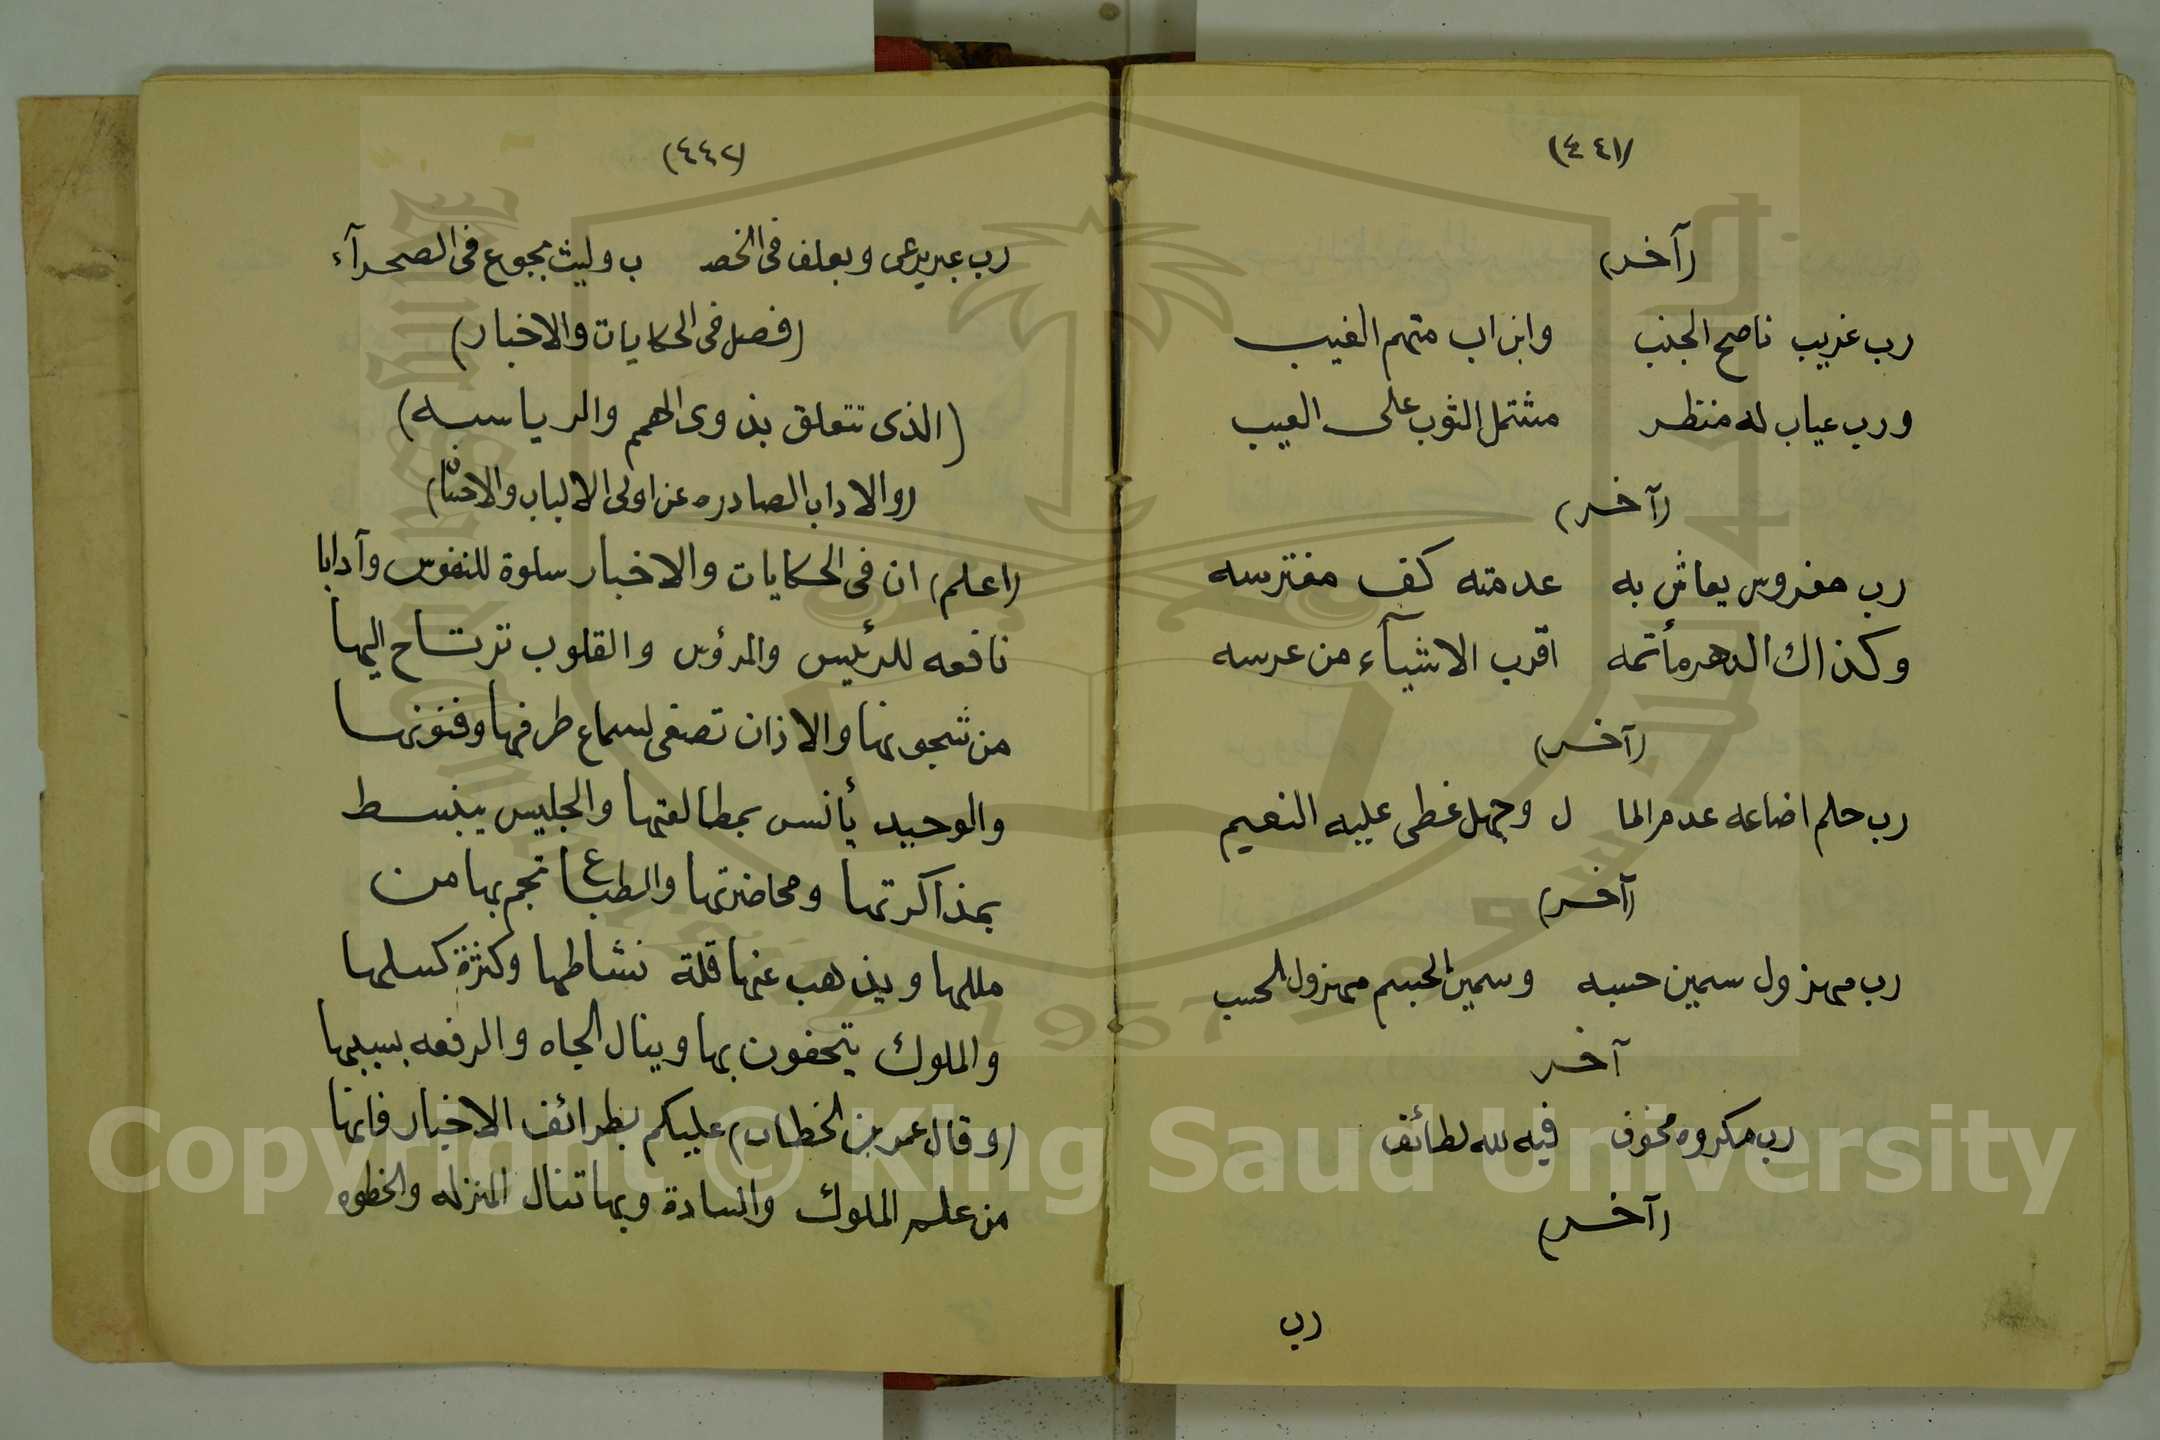 (٤٤١)
(آخر)
رب غريب ناصح الجنب وابن اب متهم الغيب
ورب عياب له منظر مشتمل الثوب على العيب
(آخر)
رب مغروس يعاش به عدمته كف مغترسه
وكذاك الدهر مأتمه اقرب الاشيآء من عرسه
(آخر)
رب حلم اضاعه عدم الما ل وجهل غطى عليه النعيم
(آخر)
رب مهزول سمين حسبه وسمين الجسم مهزول الحسب
آخر
رب مكروه مخوف فيه لله لطائف
(آخر)
رب
(٤٤٢)
رب عير يرعى ويعلف فى الخصـ ب وليث يجوع فى الصحرآء
(فصل فى الحكايات والاخبار)
(الذى تتعلق بذوى الهمم والرياسه)
(والاداب الصادره عن اولى الالباب)
(اعلم) ان فى الحكايات والاخبار سلوة للنفوس وآدابا
نافعه للرئيس والمرؤس والقلوب ترتاح اليها
من شجونها والاذان تصغى لسماع طرفها وفنونها
والوحيد يأنس بمطالعتها والجليس ينبسط
بمذاكرتها ومحاضرتها والطباع تجم بها من
مللها ويذهب عنها قلة نشاطها وكثرة كسلها
والملوك يتحفون بها وينال الجاه والرفعه بسببها
(وقال عمر بن الخطاب) عليكم بطرائف الاخبار فانها
من علم الملوك والسادة وبها تنال المنزله والخطوه
King Saud University
1957
Copyright © King Saud University